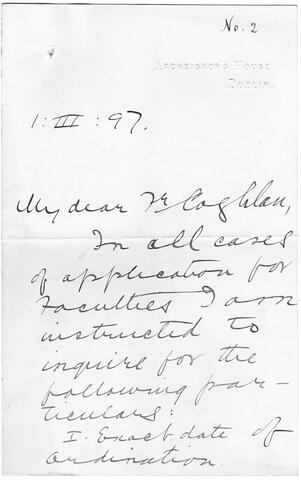 No. 2
ARCHBISHOP'S HOUSE,
DUBLIN.
1: III : 97.
My dear Fr Coghlan,
In all cases
of application for
Faculties I am
instructed to
inquire for the
following par-
ticulars:
I. Exact date of
ordination.